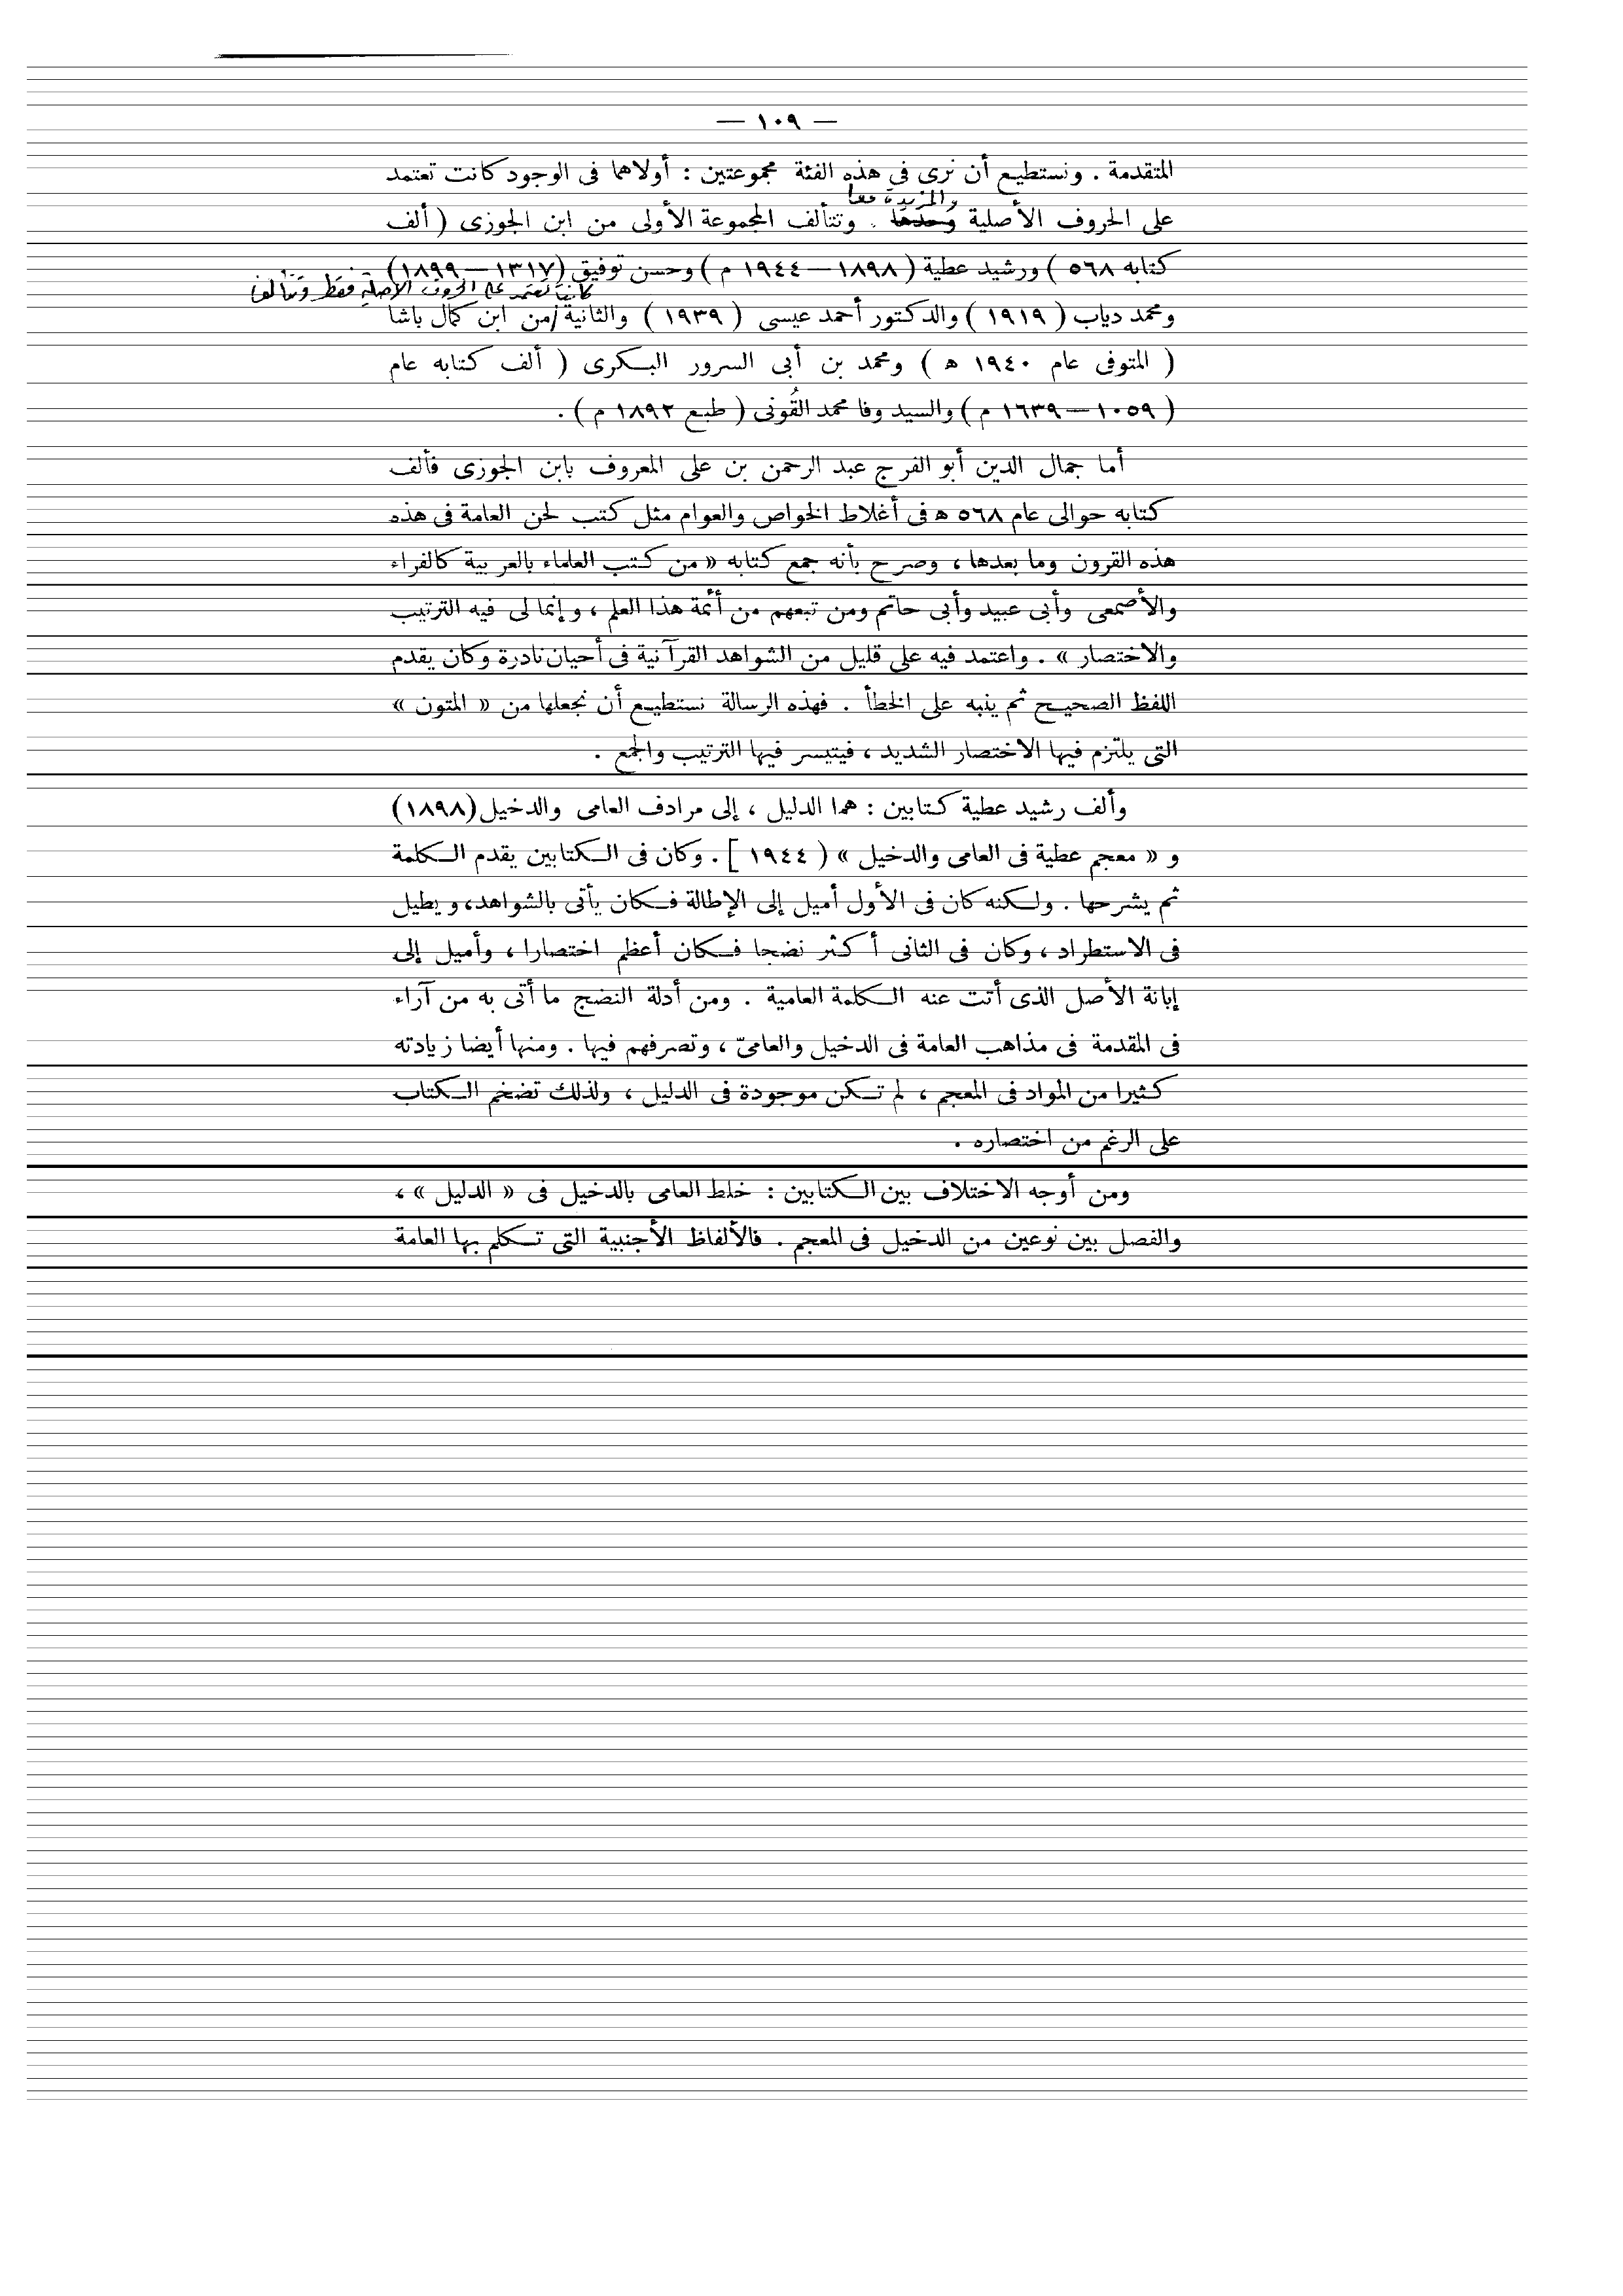 — ١٠٩ —
المتقدمة . ونستطيع أن نرى فى هذه الفئة مجموعتين : أولاهما فى الوجود كانت تعتمد
والمزيدة معا
على الحروف الأصلية وحدها . وتتألف المجموعة الأولى من ابن الجوزى ( ألف
كتابه ٥٦٨ ) ورشيد عطية ( ١٨٩٨ — ١٩٤٤ م ) وحسن توفيق (١٣١٧ — ١٨٩٩)
كانت تعتمد على الحروف الأصلية فقط وتتألف
ومحمد دياب ( ١٩١٩ ) والدكتور أحمد عيسى ( ١٩٣٩ ) والثانية / من ابن كمال باشا
( المتوفى عام ١٩٤٠ ه ) ومحمد بن أبى السرور البكرى ( ألف كتابه عام
( ١٠٥٩ — ١٦٣٩ م ) والسيد وفا محمد القُونى ( طبع ١٨٩٢ م ) .
أما جمال الدين أبو الفرج عبد الرحمن بن على المعروف بابن الجوزى فألف
كتابه حوالى عام ٥٦٨ ه فى أغلاط الخواص والعوام مثل كتب لحن العامة فى هذه
هذه القرون وما بعدها ، وصرح بأنه جمع كتابه « من كتب العلماء بالعربية كالفراء
والأصمعى وأبى عبيد وأبى حاتم ومن تبعهم من أئمة هذا العلم ، وإنما لى فيه الترتيب
والاختصار » . واعتمد فيه على قليل من الشواهد القرآنية فى أحيان نادرة وكان يقدم
اللفظ الصحيح ثم ينبه على الخطأ . فهذه الرسالة نستطيع أن نجعلها من « المتون »
التى يلتزم فيها الاختصار الشديد ، فيتيسر فيها الترتيب والجمع .
وألف رشيد عطية كتابين : هما الدليل ، إلى مرادف العامى والدخيل (١٨٩٨)
و « معجم عطية فى العامى والدخيل » ( ١٩٤٤ ] . وكان فى الكتابين يقدم الكلمة
ثم يشرحها . ولكنه كان فى الأول أميل إلى الإطالة فكان يأتى بالشواهد، ويطيل
فى الاستطراد ، وكان فى الثانى أكثر نضجا فكان أعظم اختصارا ، وأميل إلى
إبانة الأصل الذى أتت عنه الكلمة العامية . ومن أدلة النضج ما أتى به من آراء
فى المقدمة فى مذاهب العامة فى الدخيل والعامىّ ، وتصرفهم فيها . ومنها أيضا زيادته
كثيرا من المواد فى المعجم ، لم تكن موجودة فى الدليل ، ولذلك تضخم الكتاب
على الرغم من اختصاره .
ومن أوجه الاختلاف بين الكتابين : خلط العامى بالدخيل فى « الدليل » ،
والفصل بين نوعين من الدخيل فى المعجم . فالألفاظ الأجنبية التى تكلم بها العامة